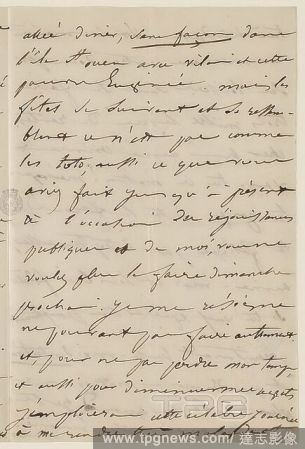 allée diner, sans façon dans
l'île St Ouen avec vilain et cette
pauvre Eugénie. mais les
fêtes se suivent et se ressem-
blent ce n'est pas comme
les toto. aussi ce que vous
aviez fait jusqu'à présent
à l'occasion des réjouissances
publiques et de moi, vous ne
voulez plus le faire dimanche
prochain. je me résigne
ne pouvant pas faire autrement
et, pour ne pas perdre mon temps
et aussi pour diminuer mes regrets
j'emploierai cette célèbre journée
à me rendre
www.tpgnews.com 達志影像